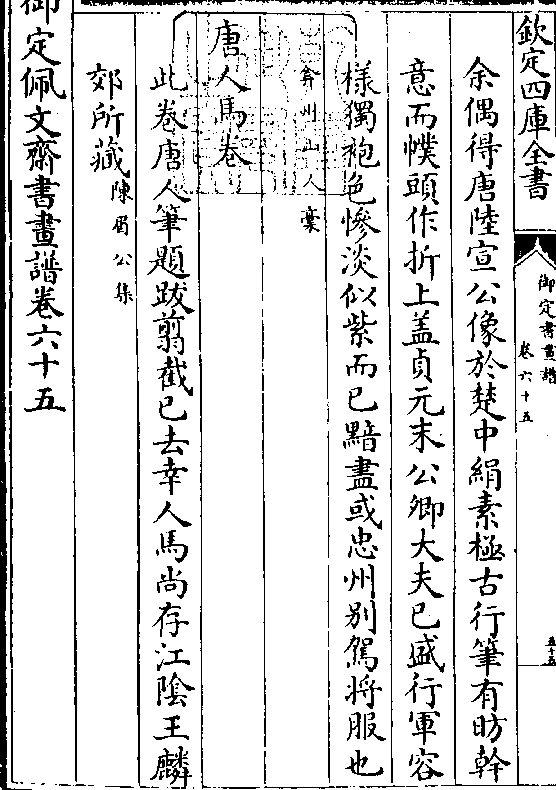 欽定四庫全書
御定書畫譜
卷六十五
五十五
余偶得唐陸宣公像於楚中絹素極古行筆有昉幹
意而幞頭作折上蓋貞元末公卿大夫已盛行軍容
樣獨袍色慘淡似紫而已黯盡或忠州别駕將服也
弇州山人藁
唐人馬卷
此卷唐人筆題跋翦截已去幸人馬尚存江陰王麟
郊所藏陳眉公集
御定佩文齋書畫譜卷六十五